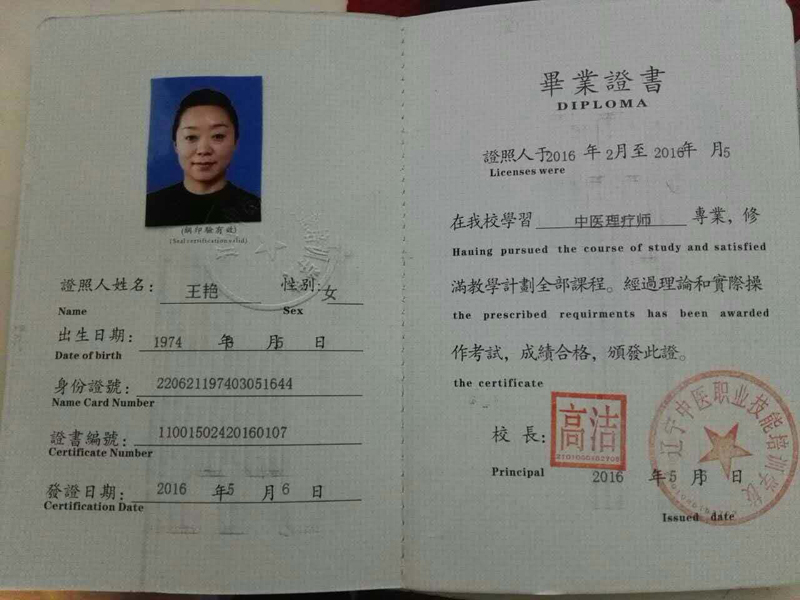 (鋼印驗有效)
(Seal certification valid)
證照人姓名: 王艳 性别: 女
Name Sex
出生日期: 1974 年3 月5 日
Date of birth
身份證號: 220621197403051644
Name Card Number
證書編號: 11001502420160107
Certificate Number
發證日期: 2016 年5 月6 日
Certification Date
畢業證書
DIPLOMA
證照人于2016 年 2月至 2016年 月5
Licenses were
在我校學習 中医理疗师 專業，修
Hauing pursued the course of study and satisfied
滿教學計劃全部課程。經過理論和實際操
the prescribed requirments has been awarded
作考試，成績合格，頒發此證。
the certificate
校長: 高洁
Principal
2016 年5 月 日
Issued date
辽宁中医职业技能培训学校